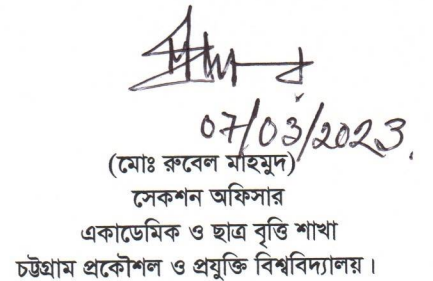 07/03/2023.
(মোঃ রুবেল মাহমুদ)
সেকশন অফিসার
একাডেমিক ও ছাত্র বৃত্তি শাখা
চট্টগ্রাম প্রকৌশল ও প্রযুক্তি বিশ্ববিদ্যালয়।